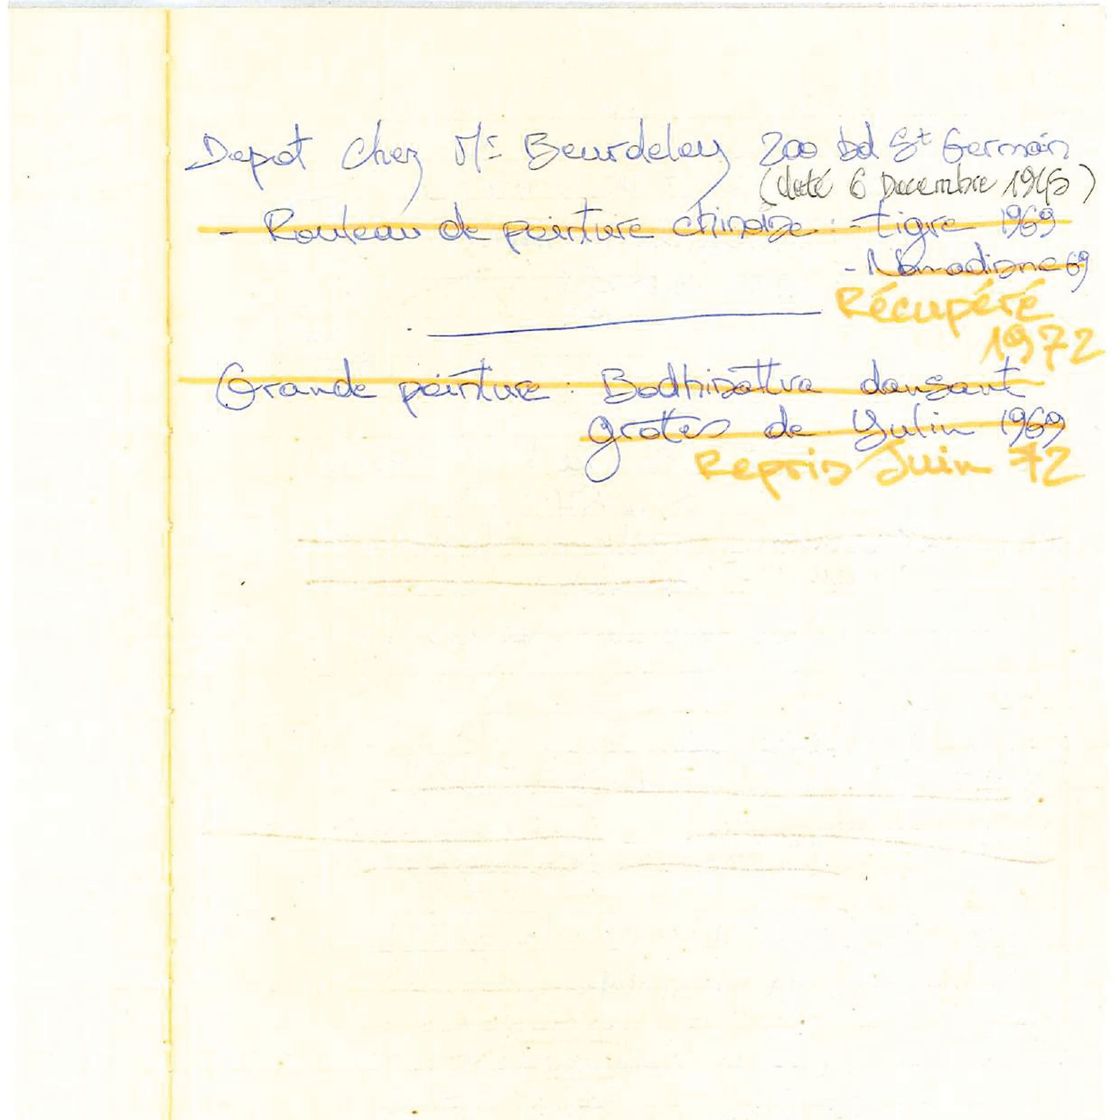 Depot chez Mr Beurdeley 200 bd St Germain
(daté 6 Decembre 1945)
- Rouleau de peinture chinoise : - tigre 1969
- 69
Récupéré
1972
Grande peinture : Bodhisattva dansant
grotes de Yulin 1969
Repris Juin 72